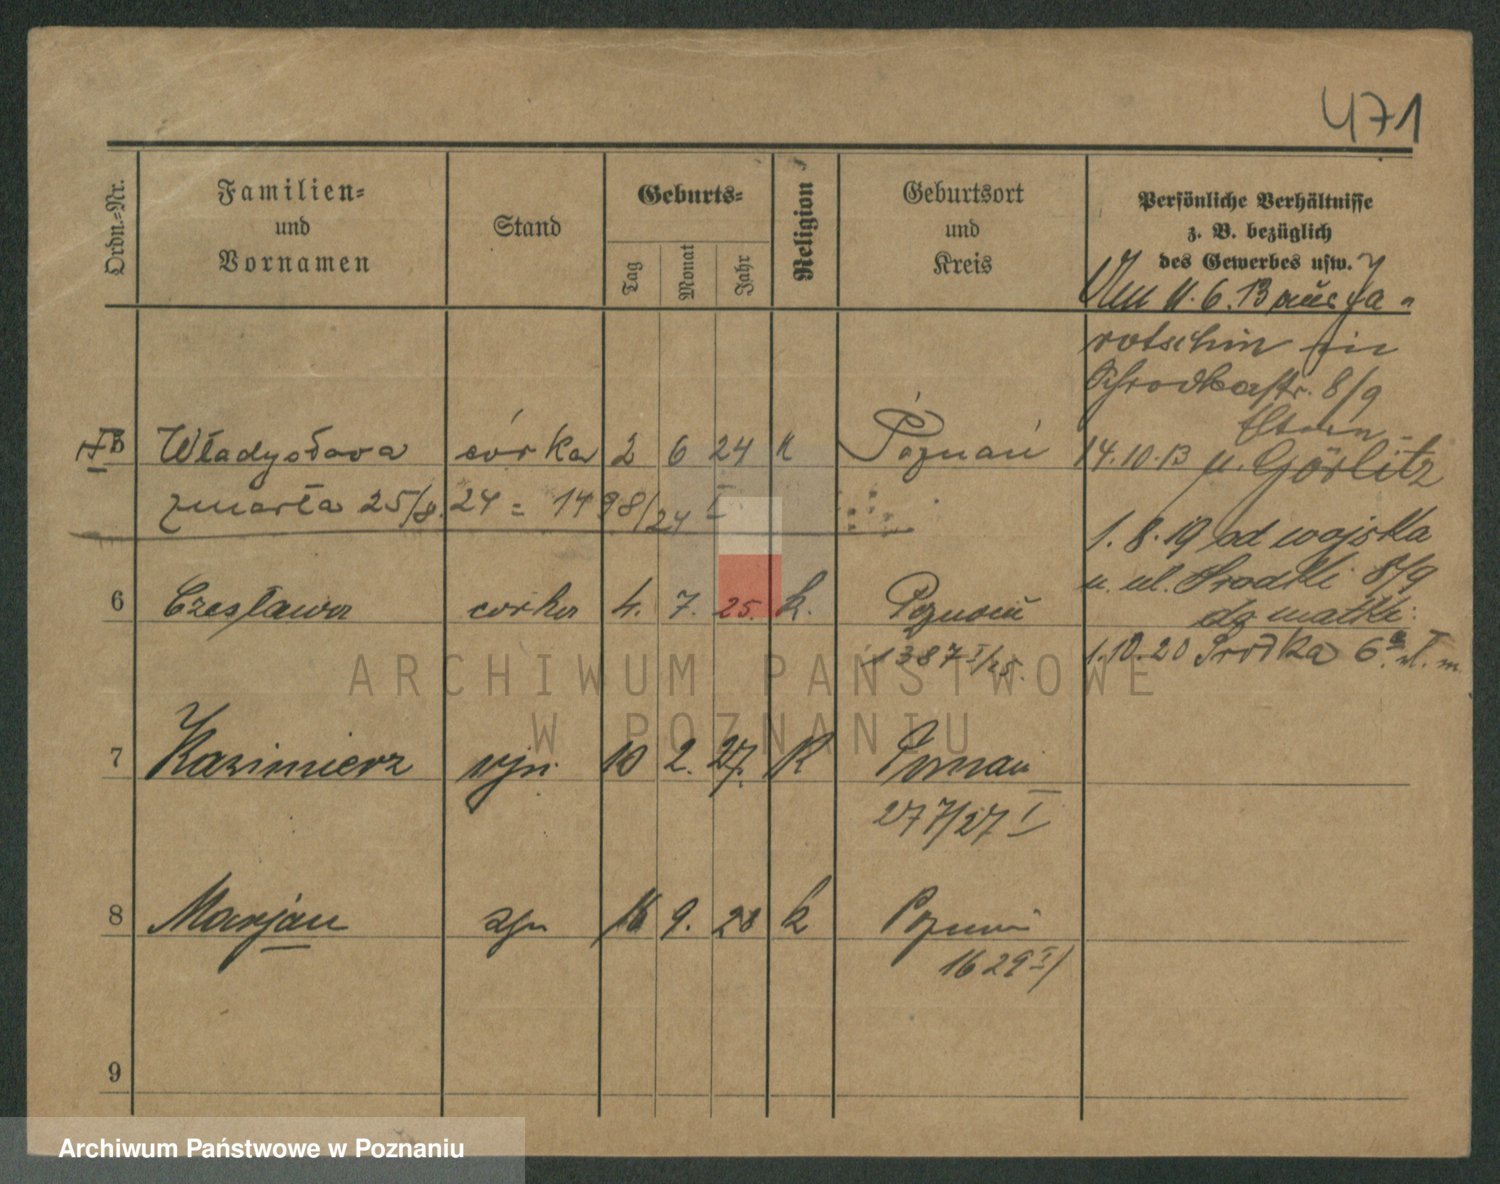 471
Ordn.-Nr.
Familien-
und
Vornamen
Stand
Geburts-
Tag
Monat
Jahr
Religion
Geburtsort
und
Kreis
Persönliche Verhältnisse
z. B. bezüglich
des Gewerbes usw.
11.6.13 aus Ja-
rotschin in
Schrodkastr. 8/9
Eltern
14.10.13 n. Görlitz
1.8.19 od wojska
n. ul. Srodki 8/9
do matki
1.10.20 Srodka 6
5 Władysława córka 2 6 24 k Poznań
zmarła 25/8.24 = 1498/24 I
6 Czesława corka 4. 7. 25. k. Poznań
1387 I/25.
7 Kazimierz syn 10 2. 27. k Poznań
277/27 I
8 Marjan syn 16 9. 28 k Poznań
1629 I/
9
ARCHIWUM PAŃSTWOWE
W POZNANIU
Archiwum Państwowe w Poznaniu